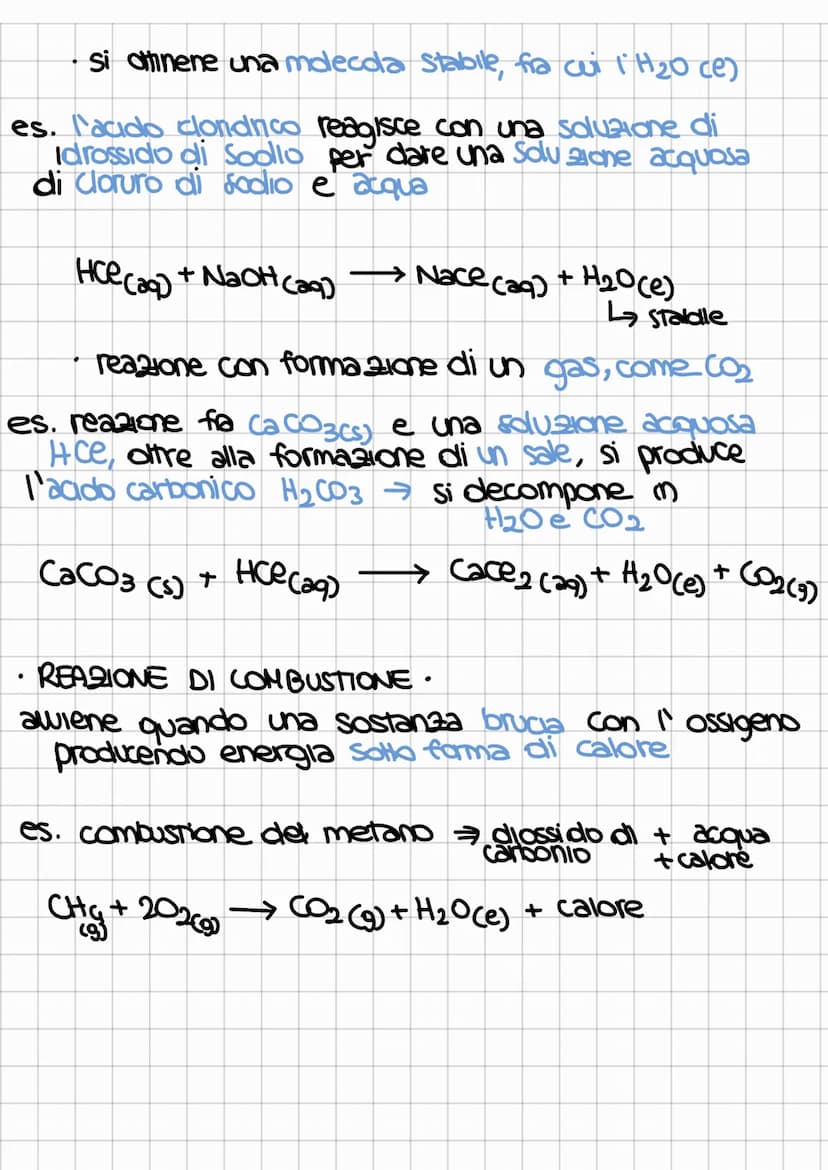 · si ottiene una molecola stabile, fra cui l'H2O (l)
es. l'acido cloridrico reagisce con una soluzione di
Idrossido di Sodio per dare una Soluzione acquosa
di Cloruro di sodio e acqua
HCl(aq) + NaOH(aq) → NaCl(aq) + H2O(l)
↳ stabile
· reazione con formazione di un gas, come CO2
es. reazione fra CaCO3(s) e una soluzione acquosa
HCl, oltre alla formazione di un sale, si produce
l'acido carbonico H2CO3 → si decompone in
H2O e CO2
CaCO3 (s) + HCl(aq) → CaCl2(aq) + H2O(l) + CO2(g)
· REAZIONE DI COMBUSTIONE ·
avviene quando una sostanza brucia con l'ossigeno
producendo energia sotto forma di calore
es. combustione del metano ⇒ diossido di + acqua
carbonio + calore
CH4(g) + 2O2(g) → CO2(g) + H2O(l) + calore